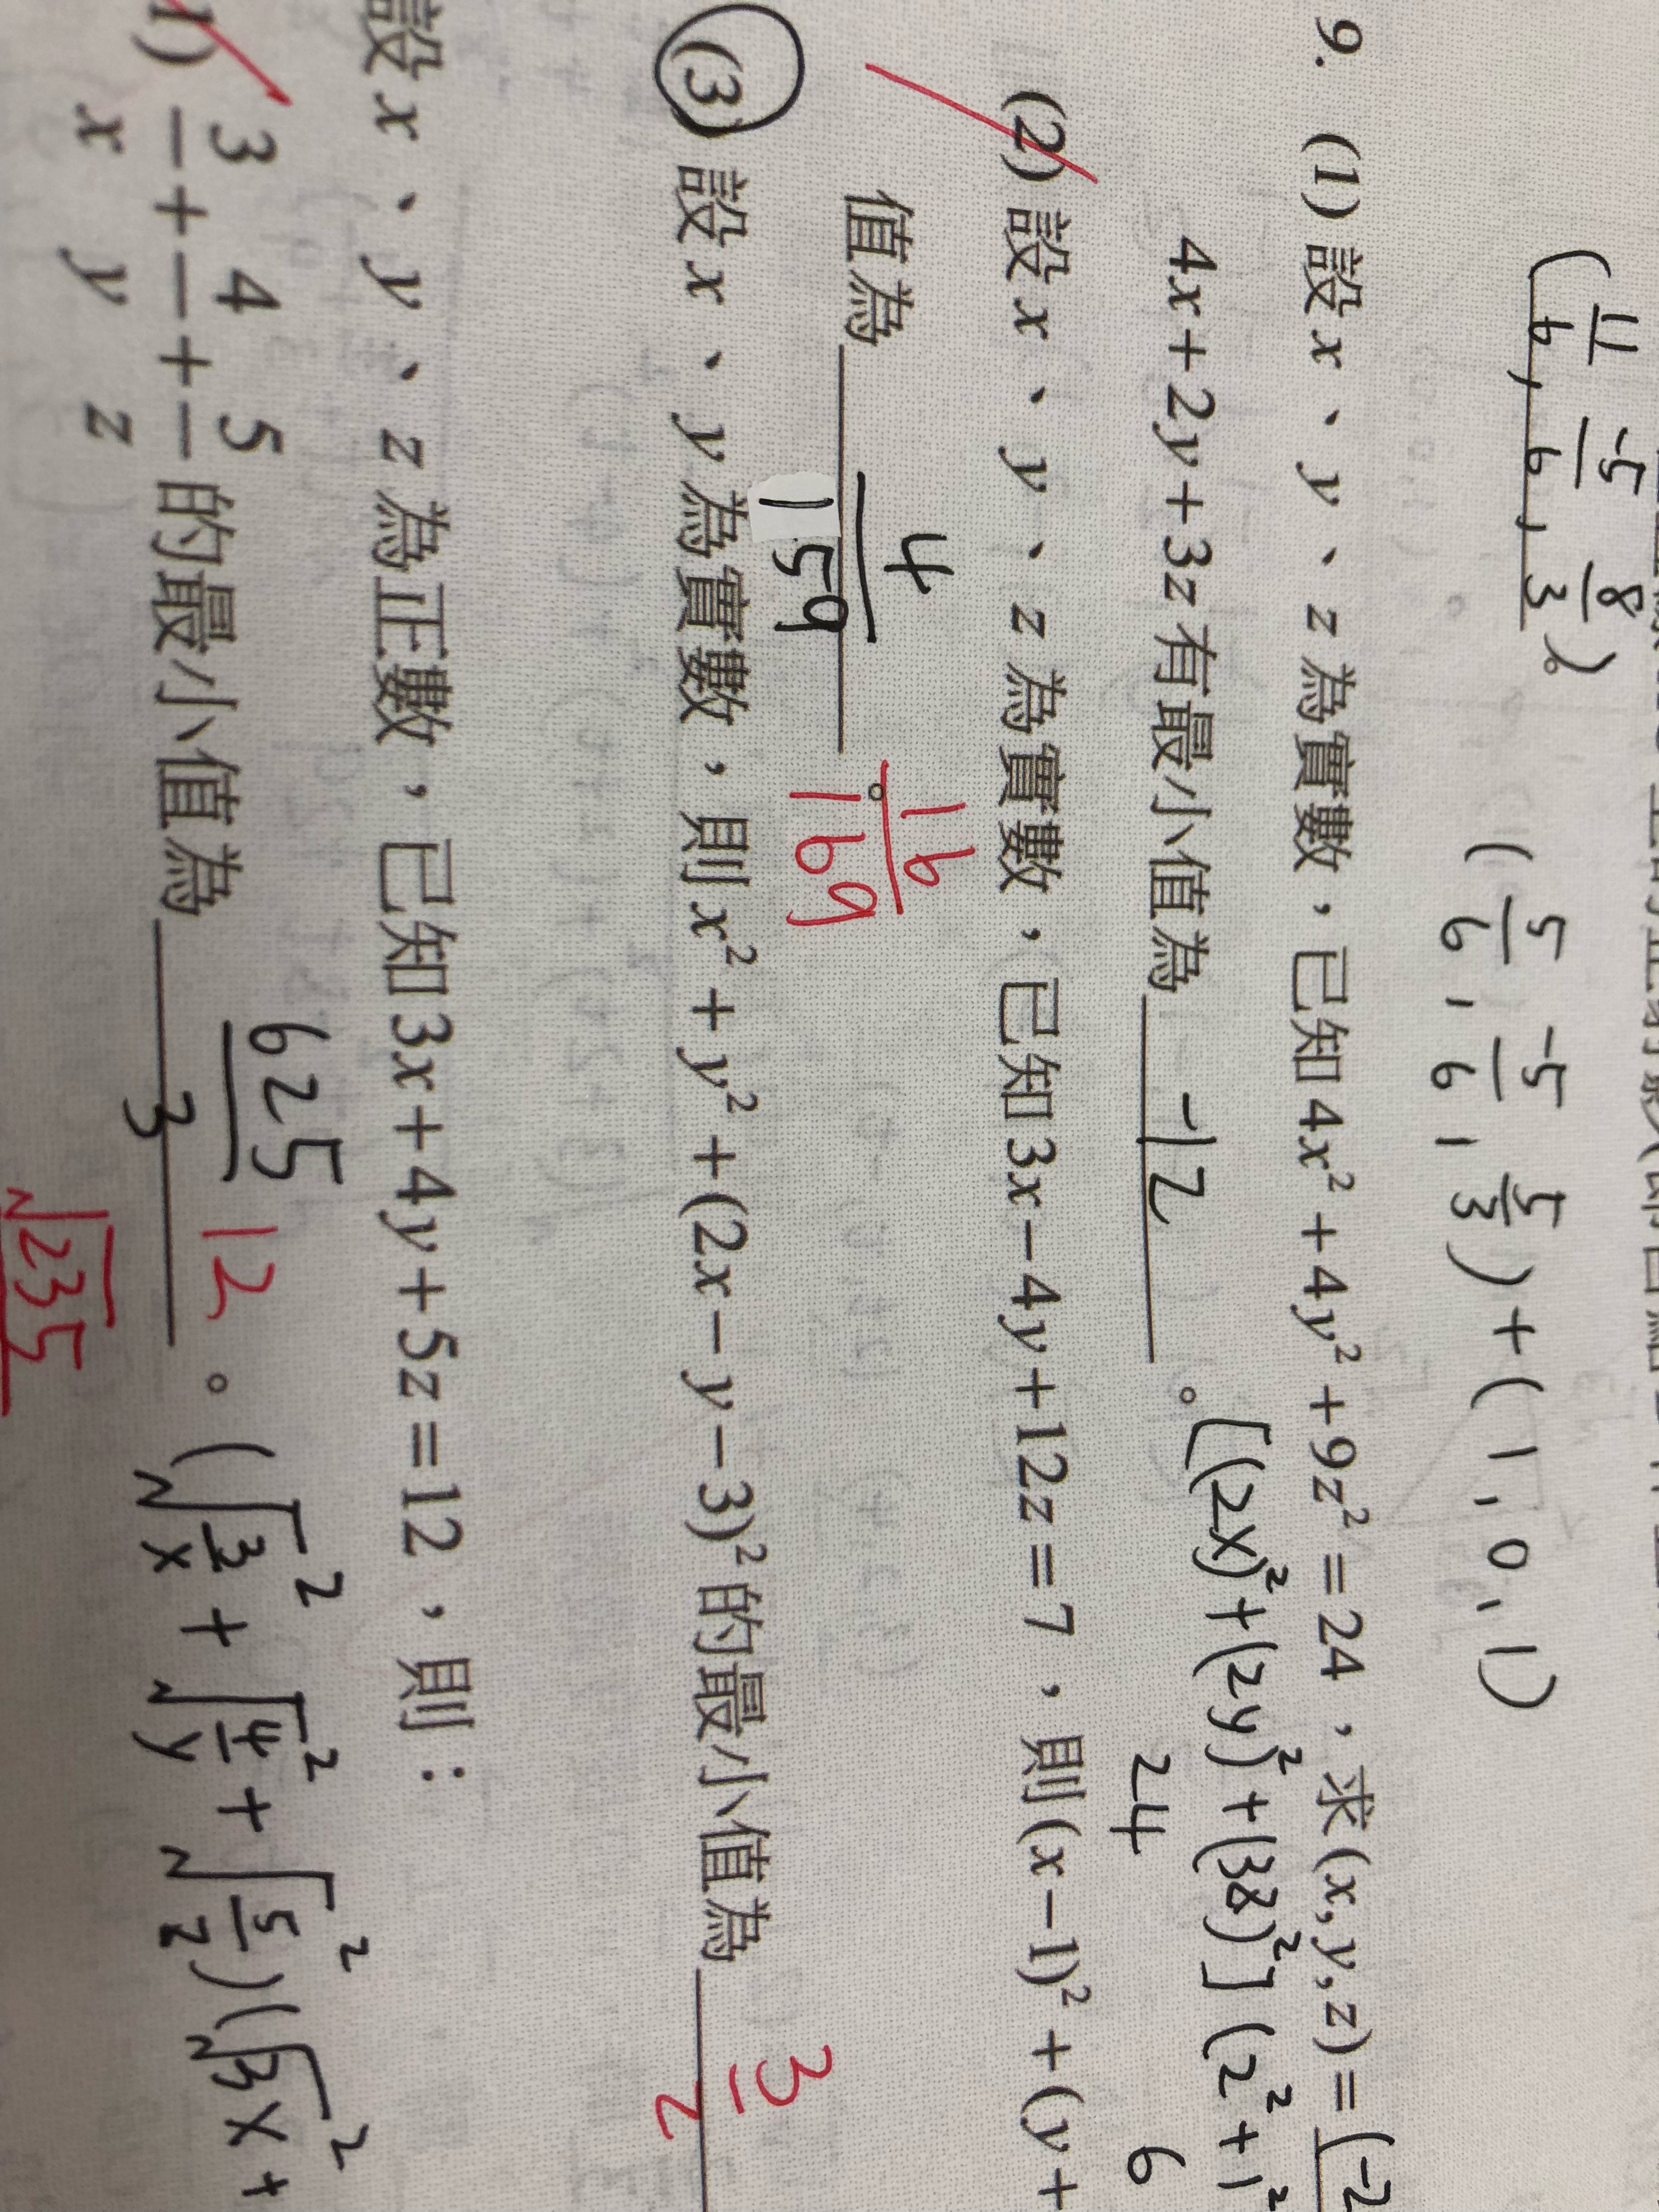 (11/6, -5/6, 8/3)。
(5/6, -5/6, 5/3)+(1,0,1)
9. (1) 設 x、y、z 為實數，已知 4x²+4y²+9z²=24，求(x,y,z)=(-2
4x+2y+3z 有最小值為 -12 。[(2x)²+(2y)²+(3z)²](2²+1²
24 6
(2) 設 x、y、z 為實數，已知 3x-4y+12z=7，則(x-1)²+(y+
值為 4/159 。 16/169
(3) 設 x、y 為實數，則 x²+y²+(2x-y-3)² 的最小值為 3/2
設 x、y、z 為正數，已知 3x+4y+5z=12，則：
1) 3/x+4/y+5/z 的最小值為 625/3 12 。(√(3/x)²+√(4/y)²+√(5/z)²)(√3x²+
√235